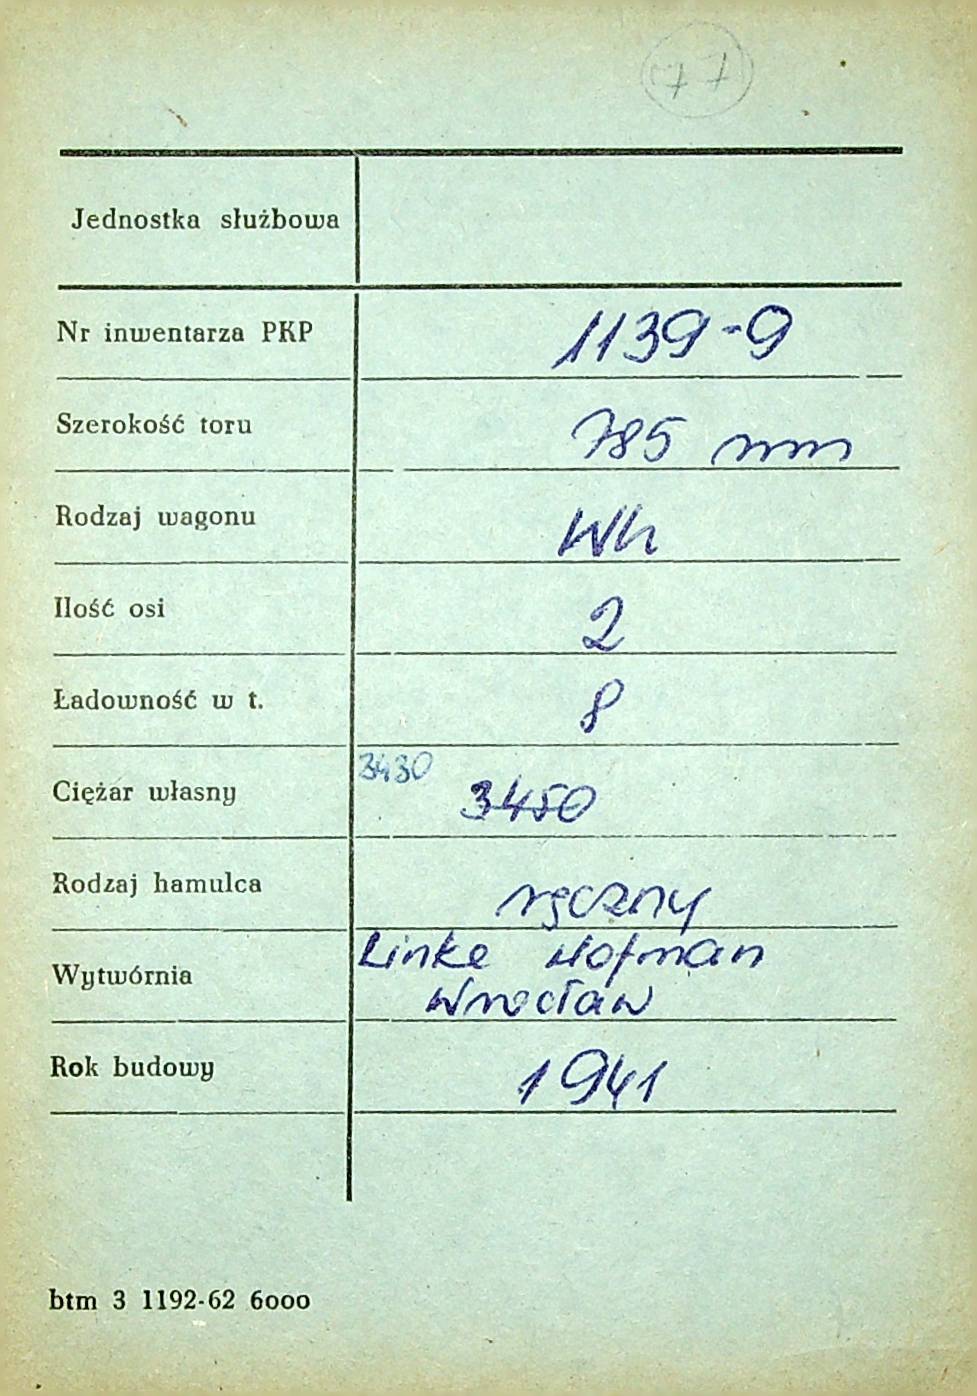 77
Jednostka służbowa
Nr inwentarza PKP 1139-9
Szerokość toru 785 mm
Rodzaj wagonu Wh
Ilość osi 2
Ładowność w t. 8
3430
Ciężar własny 3450
Rodzaj hamulca ręczny
Linke Hofman
Wytwórnia
Wrocław
Rok budowy 1941
btm 3 1192-62 6000